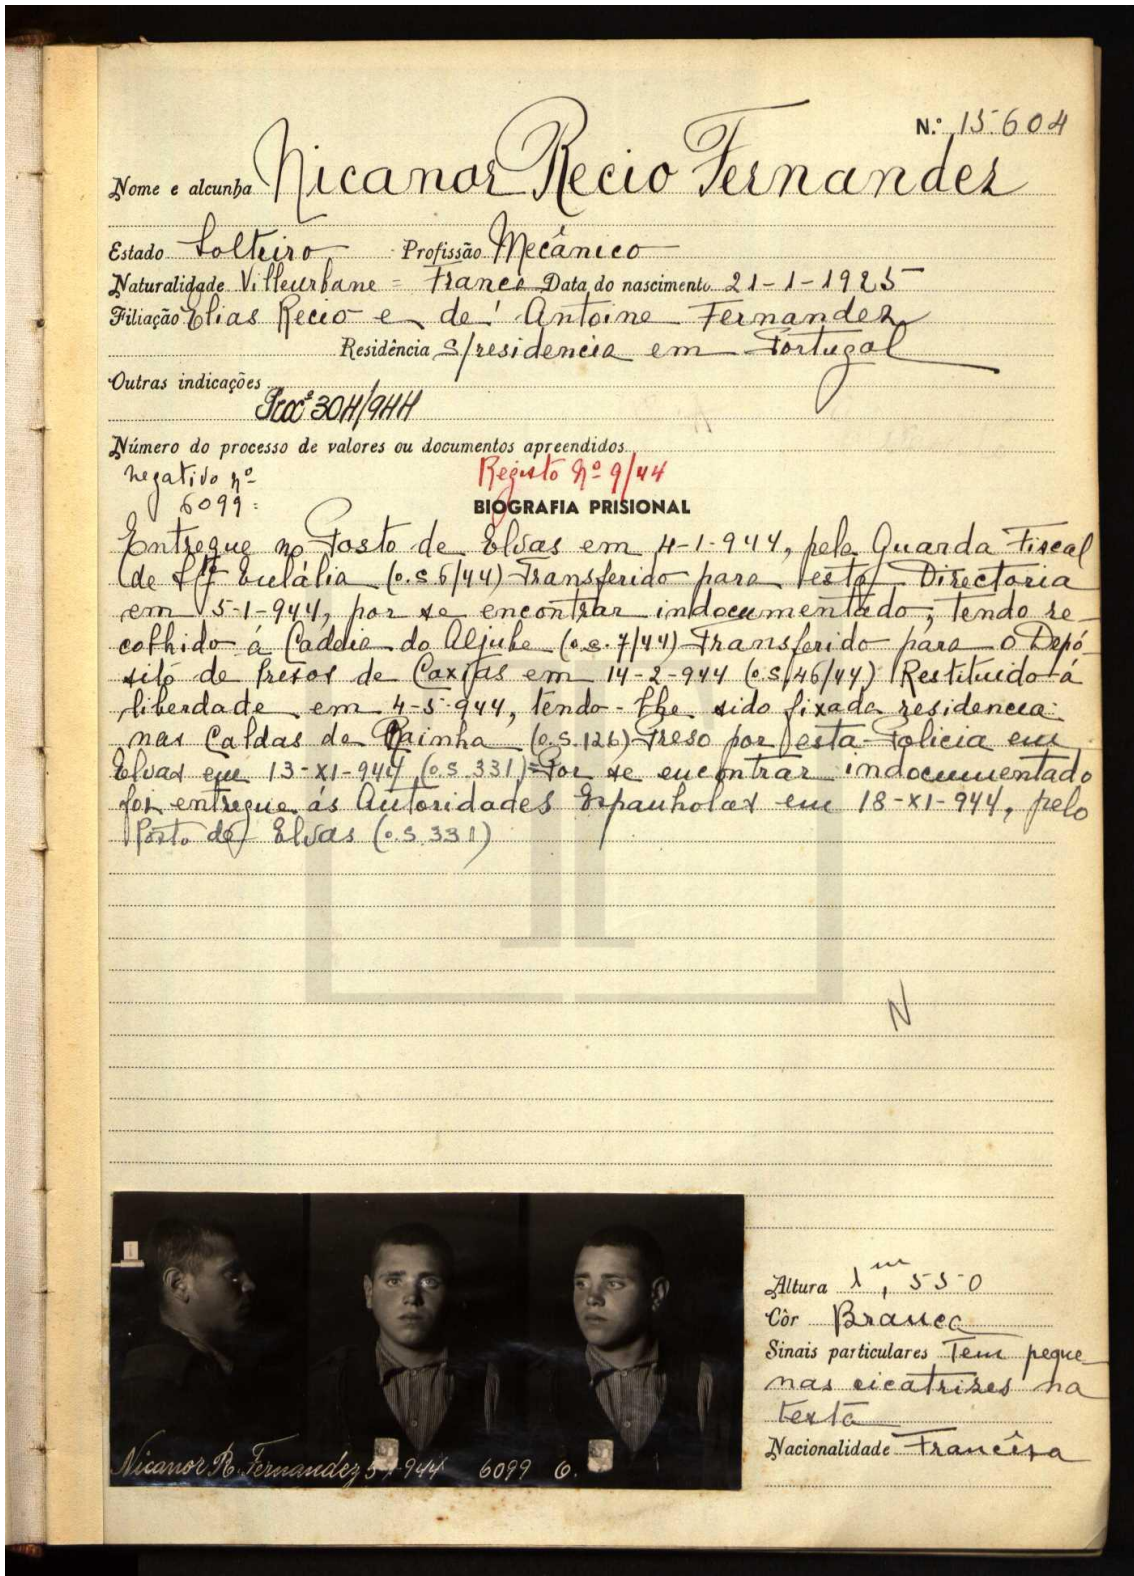 N.º 15.604
Nome e alcunha Nicanor Recio Fernandez
Estado Solteiro Profissão Mecânico
Naturalidade Villeurbane = France Data do nascimento 21-1-1925
Filiação Elias Recio e de Antoine Fernandez
Residência s/residencia em Portugal
Outras indicações
Procº 304/944
Número do processo de valores ou documentos apreendidos
negativo nº
Registo Nº 9/44
6099=
BIOGRAFIA PRISIONAL
Entregue no Posto de Elvas em 4-1-944, pela Guarda Fiscal
de Stª Eulália (o.s 6/44) Transferido para esta Directoria
em 5-1-944, por se encontrar indocumentado, tendo re-
colhido á Cadeia do Aljube (o.s. 7/44) Transferido para o Depó-
sito de Presos de Caxias em 14-2-944 (o.s 46/44) Restituido á
liberdade em 4-5-944, tendo-lhe sido fixada residencia
nas Caldas da Rainha (o.s. 126) Preso por esta Policia em
Elvas em 13-XI-944 (o.s 331) = Por se encontrar indocumentado
foi entregue ás Autoridades Espanholas em 18-XI-944, pelo
Posto de Elvas (o.s 331)
N
Altura 1m, 550
Côr Branca
Sinais particulares Tem peque-
nas cicatrizes na
testa
Nacionalidade Francêsa
Nicanor R. Fernandez 5-1-944 6099 G.